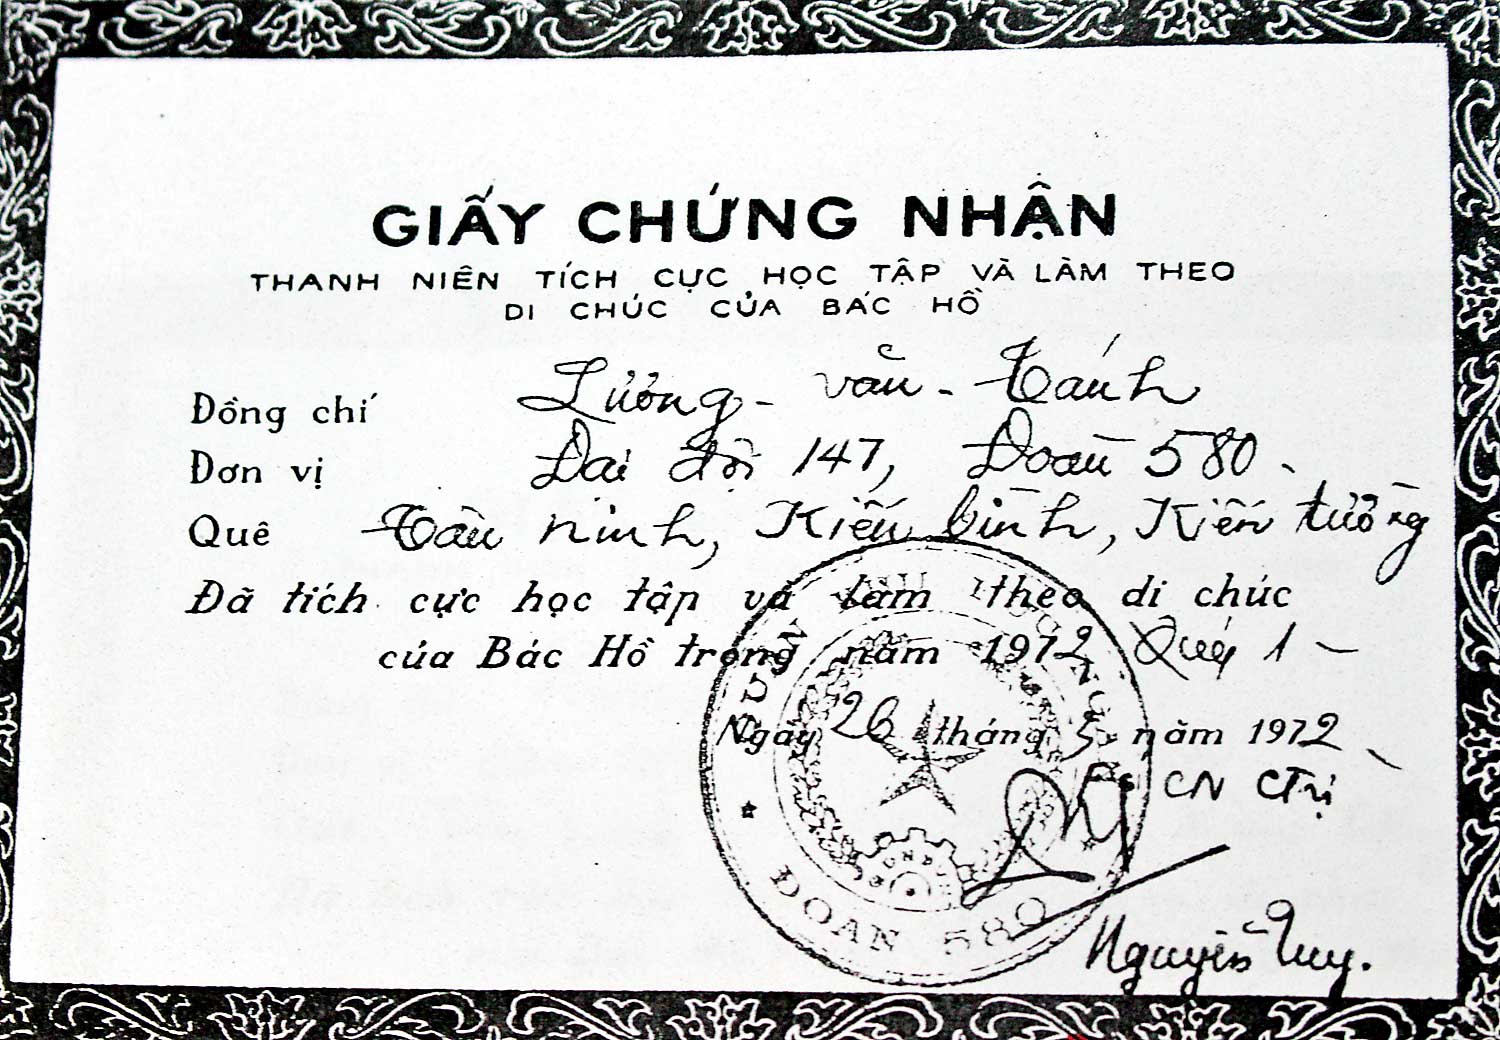 GIẤY CHỨNG NHẬN
THANH NIÊN TÍCH CỰC HỌC TẬP VÀ LÀM THEO
DI CHÚC CỦA BÁC HỒ
Đồng chí Lương - văn - Tánh
Đơn vị Đại đội 147, Đoàn 580 -
Quê Tân Ninh, Kiến bình, Kiến tường
Đã tích cực học tập và làm theo di chúc
của Bác Hồ trong năm 1972 Quý 1 -
Ngày 26 tháng 5 năm 1972
CN CTrị
ĐOAN 580
Nguyễn Tuy.